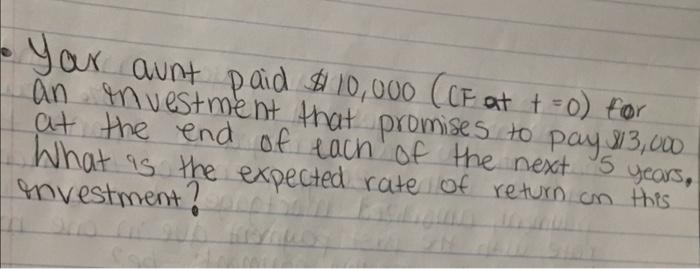 • Your aunt paid $10,000 (CF at t=0) for
an investment that promises to pay $13,000
at the end of each of the next 5 years.
What is the expected rate of return on this
investment?